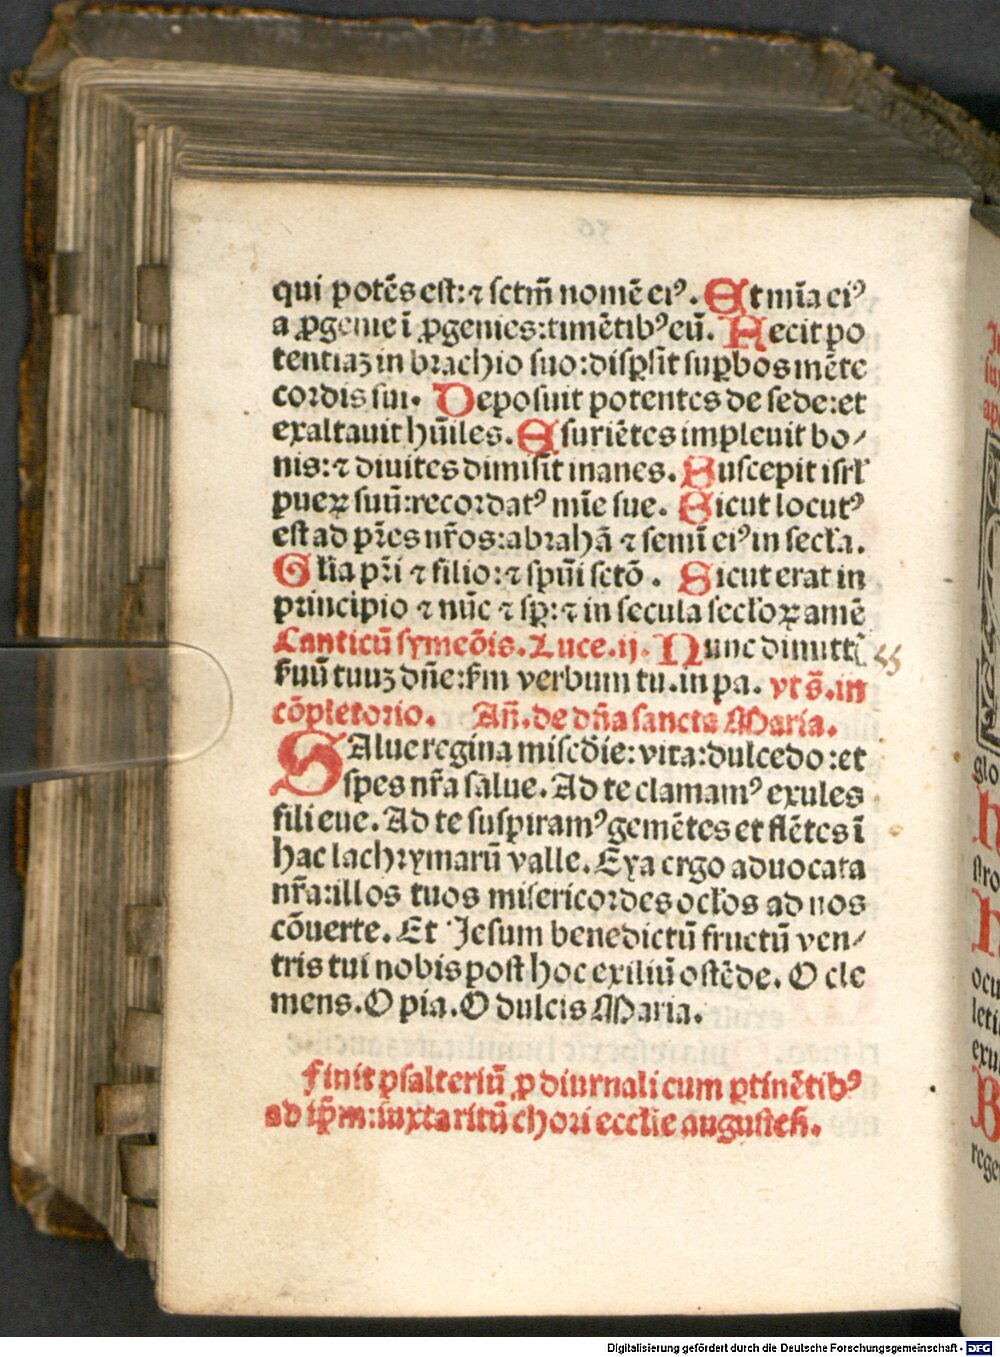 qui potēs est: ⁊ sctm̄ nomē eiꝰ. Et mīa eiꝰ
a ꝓgenie ī ꝓgenies: timētibꝰ eū. Fecit po
tentiaʒ in brachio suo: disp̲sit sup̲bos mēte
cordis sui. Deposuit potentes de sede: et
exaltauit hūiles. Esuriētes impleuit bo⸗
nis: ⁊ diuites dimisit inanes. Suscepit isrl̄
pueꝝ suū: recordatꝰ mīe sue. Sicut locutꝰ
est ad pr̄es nr̄os: abrahā ⁊ semī eiꝰ in secl̄a.
Gl̄ia pr̄i ⁊ filio: ⁊ spūi sctō. Sicut erat in
principio ⁊ nūc ⁊ sp̲: ⁊ in secula secl̄oꝝ amē
Canticū symeōis. Luce. ij. Nunc dimittī
ẜuū tuuʒ dn̄e: ẜm verbum tu. in pa. vt s̄. in
cōpletorio. Añ. de dn̄a sancta Maria.
SAlue regina misc̄die: vita: dulcedo: et
spes nr̄a salue. Ad te clamamꝰ exules
filii eue. Ad te suspiramꝰ gemētes et flētes ī
hac lachrymarū valle. Eya ergo aduocata
nr̄a: illos tuos misericordes ocl̄os ad nos
cōuerte. Et Jesum benedictū fructū ven⸗
tris tui nobis post hoc exiliū ostēde. O cle
mens. O pia. O dulcis Maria.
Finit psalteriū ꝓ diurnali cum p̲tinētibꝰ
ad ip̄m: iuxta ritū chori eccl̄ie augusteñ.
Digitalisierung gefördert durch die Deutsche Forschungsgemeinschaft - DFG